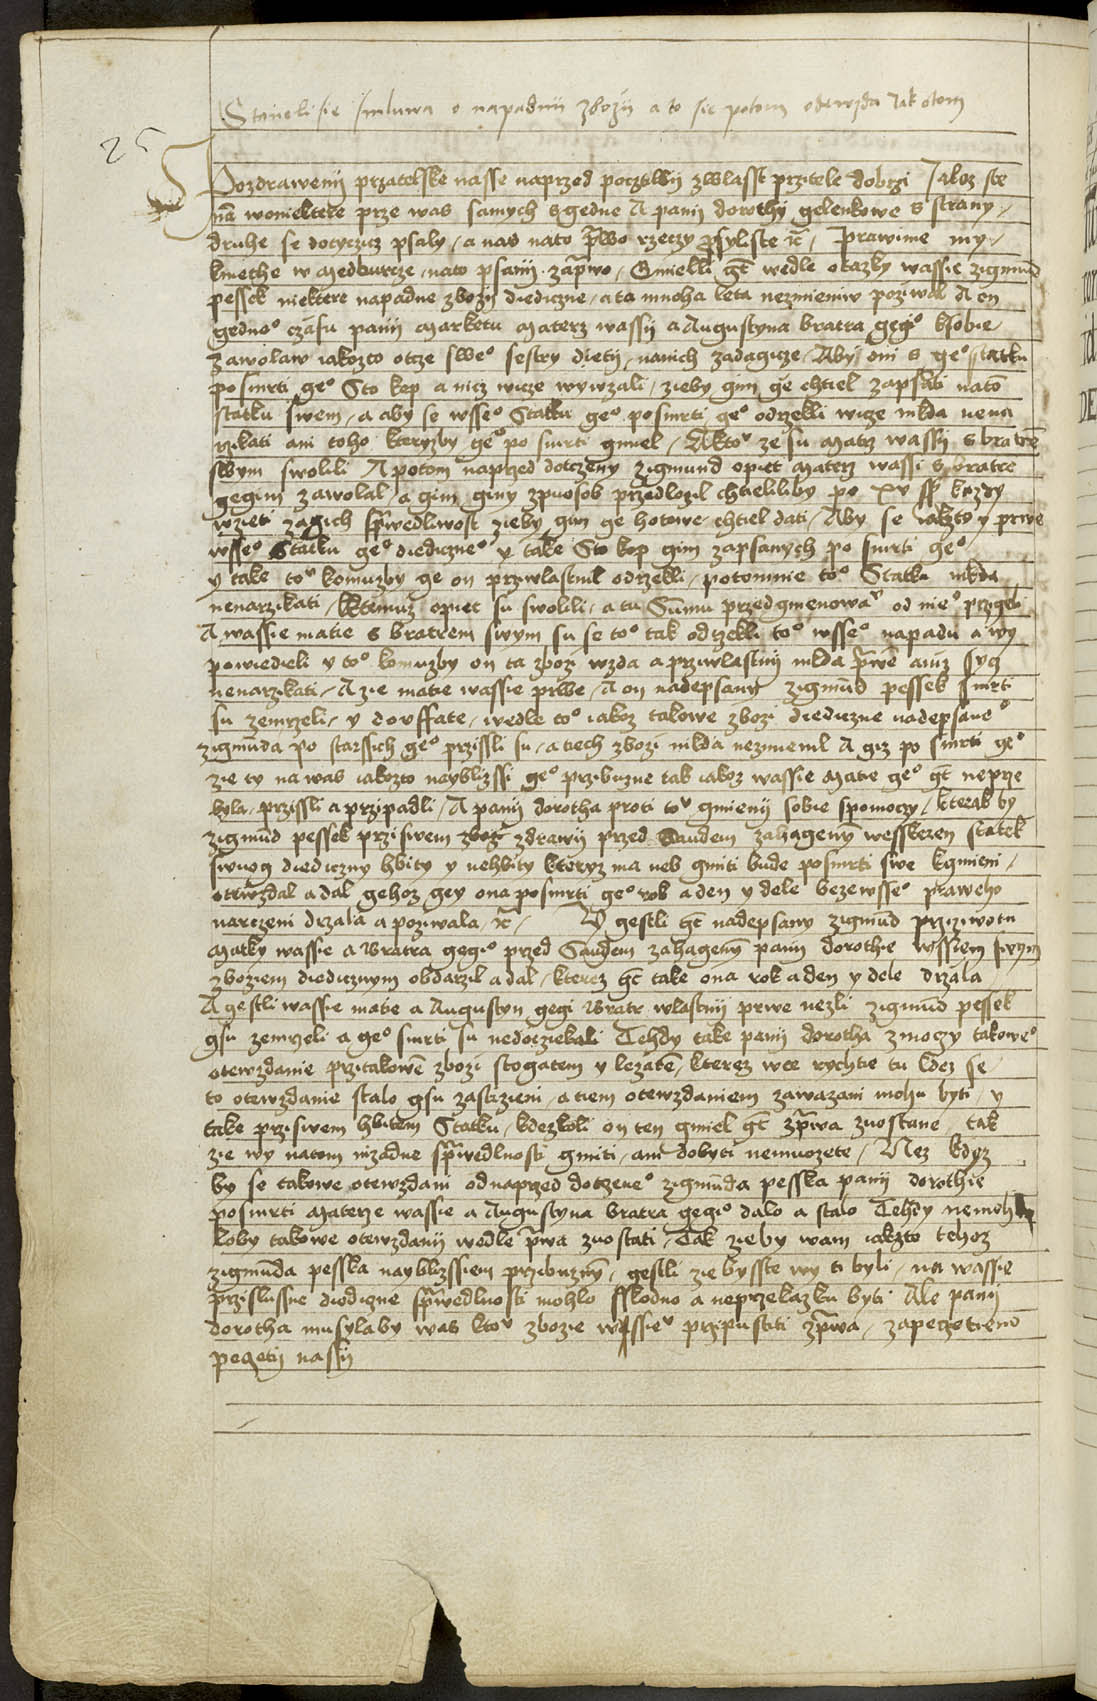 Staneli sie smluwa o napadnii zbozij a to sie potom odewzda Jak otom
25
Pozdrawenij przatelske nasse naprzed pocztiwij zwlasst przitele dobrzi Jakoz ste
nā woniektere prze was samych s gedne A panij dorothy gelenkowe s strany
druhe se dotyczicz psaly / a nas nato p̄wo rzeczy psyliste ꝛc̄ / Prawime my
kmethe w Medburcze / nato psanij zap̄wo / Gmielli gt̄ wedle otazky wassie zigmūd
pessek niektere napadne zbozij diediczne / a ta mnoha leta nezmieniw poziwal A on
gedneº czasu panij Marketu Materz wassij a Augustyna bratra gegiº k sobie
zawolaw iakozto otcze sweº sestry dietij / nanich zadagicze / Aby oni s geº statku
po smrti geº Sto kop a nicz wicze wzwzali / zieby gim ge chtiel zapsati nato
statku swem / a aby se wsseº Statku geº posmrti geº odrzekli wicze nikda nena
rzikati ani toho kteryzby geº po smrti gmiel / Aktoº ze su Matz wassij s bratrē
swym swolili A potom naprzed dotczeny zigmund opiet Materz wassi s bratrē
geginj zawolal / a gim giny zpuosob przedlozil chtieliliby po xv ss̄ kazdy
wzieti zagich sp̄wedliwost zieby gim ge hotowe chtiel dati / Aby se iakzto y prwe
wsseº Statku geº diediczneº y take Sto kop gim zapsanych po smrti geº
y take toº komuzby ge on przwlastnil odrzekli / potomnie toº Statku nikda
nenarzikati / Ktemuz opiet su swolili / a tu Sūmu przedgmenowaº od nieº przigeli
A wassie matie s bratrem swym su se toº tak odrzekli toº wsseº napadu a wy
powiedieli y toº komuzby on ta zbozi wzda a przwlastnij nikda p̄we aniz syg
nenarzikati / A zie matie wassie prwe / A on nadepsany zigmūd pessek smrti
su zemrzeli / y doussate / wedle toº iakoz takowe zbozi diediczne nadepsaneº
zigmūda po starssich geº przissli su / a tiech zbozi nikda nezmienil A giz po smrti geº
zie ty na was iakozto nayblizssi geº przibuzne tak iakoz wassie Matie geº gt̄ neprze
byla / przissli a przipadli / A panij dorotha proti toº gmienij sobie spomoczy / kterak by
zigmūd pessek przi swem zbozi zdrawij przed Saudem zahagenym wesskeren statek
swuog diediczny hbity y nehbity kteryz ma neb gmiti bude posmrti swe kgmieni /
otewzdal a dal gehoz gey ona posmrti geº rok a den y dele bezewsseº praweho
narczeni drzala a poziwala / ꝛc̄ / Y gestli gt̄ nadepsany zigmūd przi ziwotu
Matky wassie a bratra gegiº przed Saudem zahagenȳ panij dorothie wssiem swym
zboziem diedicznym obdarzil a dal / kterez gt̄ take ona rok a den y dele drzala
A gestli wassie matie a Augustyn gegi bratr wlastnij prwe nezli zigmūd pessek
gsu zemrzeli a geº smrti su nedocziekali Tehdy take panij dorotha z moczy takoweº
otewzdanie przitakowē zbozi stogatem y lezatē / kterez wte rychtie tu kdez se
to otewzdanie stalo gsu zastizieni / a tiem otewzdaniem zawazani mohu byti / y
take przi swem hbitem Statku / kdezkoli on ten gmiel gt̄ zp̄wa zuostane / tak
zie wy natom nizadne sp̄wedlnosti gmiti / ani dobyti nemuozete / Nez kdyz
by se takowe otewzdani odnaprzed dotczeneº zigmūda pesska panij dorothie
posmrti Materze wassie a Augustyna bratra gegiº dalo a stalo Tehdy nemoh
loby takowe otewzdanij wedle p̄wa zuostati / Tak zieby wam iakzto tehoz
zigmūda pesska nayblizssiem przibuznȳ / gestli zie bysste wy ti byli / na wassie
przislussne diediczne sp̄wedlnosti mohlo sskodno a neprzekazku byti Ale panij
dorotha musylaby was ktoº zbozie wassieº przipustiti zp̄wa / zapeczetieno
peczetij nassij